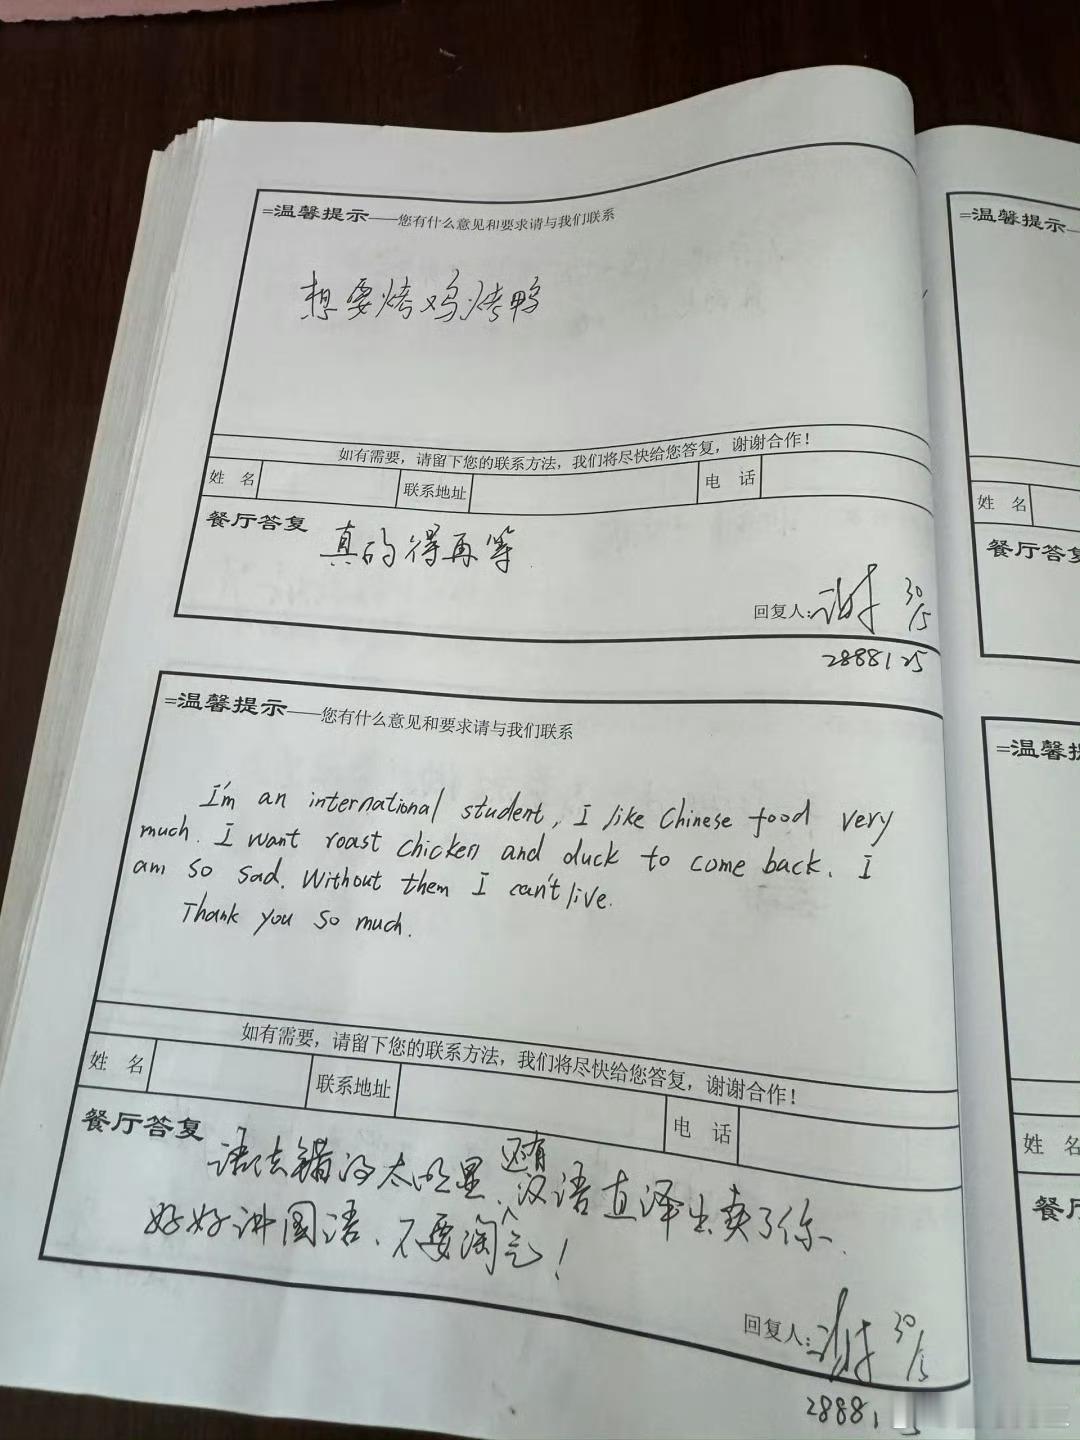 =温馨提示——您有什么意见和要求请与我们联系
想要烤鸡烤鸭
如有需要，请留下您的联系方法，我们将尽快给您答复，谢谢合作！
姓 名 联系地址 电 话
餐厅答复
真的得再等
回复人：谢 30/5
2888125
=温馨提示——您有什么意见和要求请与我们联系
I'm an international student, I like Chinese food very
much. I want roast chicken and duck to come back. I
am so sad. Without them I can't live.
Thank you so much.
如有需要，请留下您的联系方法，我们将尽快给您答复，谢谢合作！
姓 名 联系地址 电 话
餐厅答复
语法错的太明显、还有汉语直译出卖了你、
好好讲国语、不要淘气！
回复人：谢 30/5
28881
=温馨提示
姓 名
餐厅答复
=温馨提
姓 名
餐厅